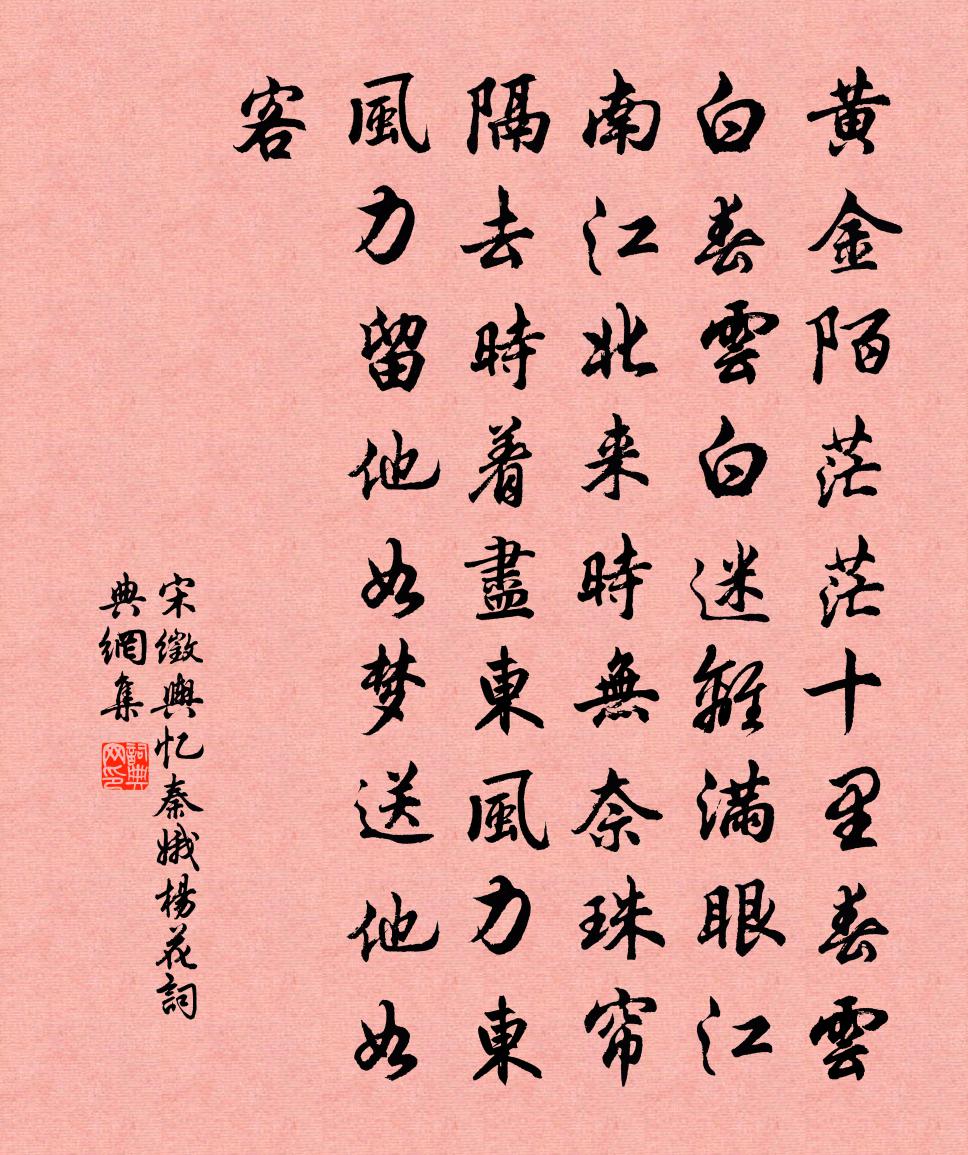 黄金陌茫茫十里春雲
白春雲白迷離滿眼江
南江北来時無奈珠帘
隔去時着盡東風力東
風力留他如梦送他如
客
宋徵輿忆秦娥楊花詞
典網集
詞典
网印